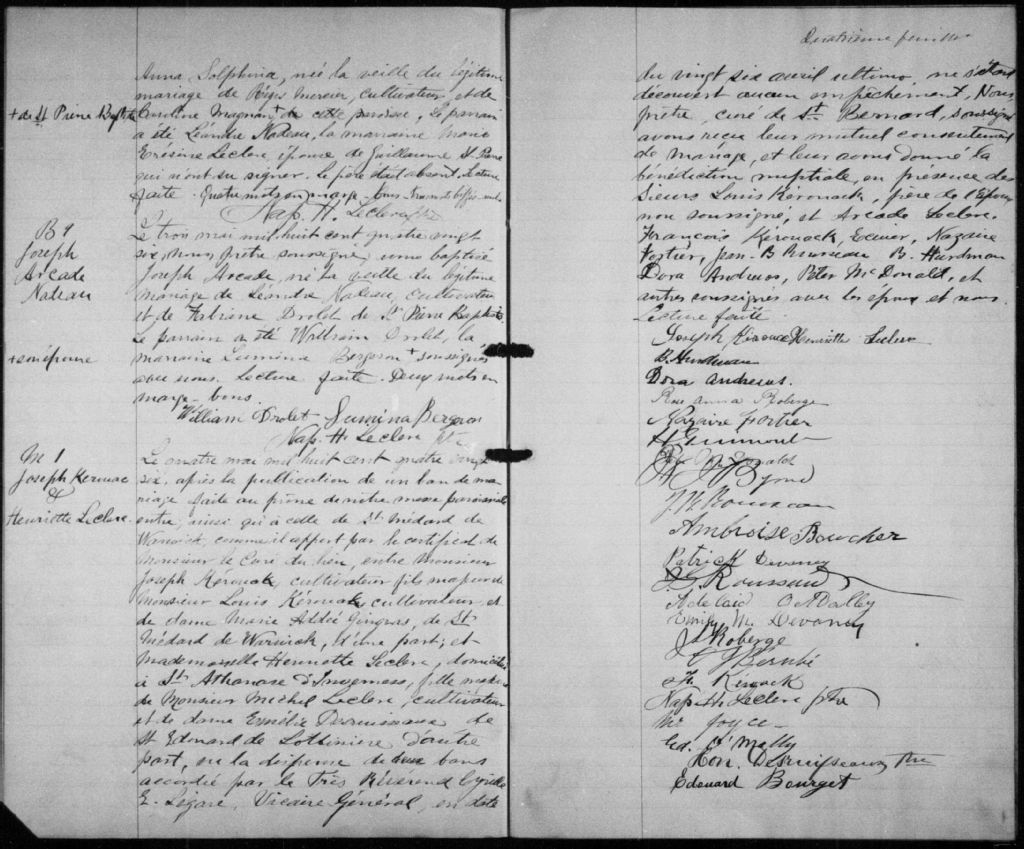 Anna Dolphina, né la veille du légitime
mariage de Régis Mercier, cultivateur, et de
+ de St Pierre Baptiste
Caroline Magnan + de cette paroisse, Le parrain
a été Léandre Nadeau, la marraine Marie
Leclerc, épouse de Guillaume St Pierre
qui n'ont su signer. Le père était absent. Lecture
faite. Quatre mots en marge. bons.
Nap. H. Leclerc ptre
B 1
Joseph
Arcade
Nadeau
Le trois mai mil huit cent quatre vingt
six, Nous, prêtre soussigné, avons baptisé
Joseph Arcade, né la veille du légitime
mariage de Léandre Nadeau, cultivateur
et de Drolet de St Pierre Baptiste.
Le parrain a été William Drolet, la
+ son épouse
marraine Lumina Bergeron + soussignés
avec nous. Lecture faite. Deux mots en
marge bons.
William Drolet Lumina Bergeron
Nap. H. Leclerc ptre
M 1
Joseph Kerouac
&
Henriette Leclerc.
Le quatre mai mil huit cent quatre vingt
six, après la publication de un ban de ma-
riage faite au prône de notre messe paroissiale
entre, ainsi qu'à celle de St Médard de
Warwick, comme il appert par le certificat de
Monsieur le Curé du lieu, entre Monsieur
Joseph Kerouack, cultivateur, fils majeur de
Monsieur Louis Kérouack, cultivateur, et
de dame Marie Gingras, de St
Médard de Warwick, d'une part; et
Mademoiselle Henriette Leclerc, domiciliée
à St Athanase d'Inverness, fille majeure
de Monsieur Michel Leclerc, cultivateur
et de dame Emélie Desruisseaux de
St Edouard de Lotbinière d'autre
part, vu la dispense de deux bans
accordée par le Très Révérend Cyrille
E. Légaré, Vicaire Général, en date
Quatrième feuillet
du vingt six avril ultimo, ne s'étant
découvert aucun empêchement, Nous,
prêtre, curé de St Bernard, soussigné
avons reçu leur mutuel consentement
de mariage, et leur avons donné la
bénédiction nuptiale, en présence des
Sieurs Louis Kérouack, père de l'Epoux
non soussigné, et Arcade Leclerc,
François Kérouack, Ecuier, Nazaire
Fortier, Jean. B Rousseau B. Hurdman
Dora Andrews, Peter McDonald, et
autres soussignés avec les époux et nous.
Lecture faite.
Joseph Kirouac Henriette Leclerc
B. Hurdman
Dora Andrews.
Rose Anna Roberge
Nazaire Fortier
Byrne
J. B. Rousseau
Ambroise Boucher
Patrick Devaney
Rousseau
Adelaid O'Malley
Emily M. Devaney
J Roberge
C J Bernbé
Kirouack
Nap. H. Leclerc ptre
Mr Joyce
Ed. O'Mally
Hon. Desruisseaux Ptre
Edouard Bourget